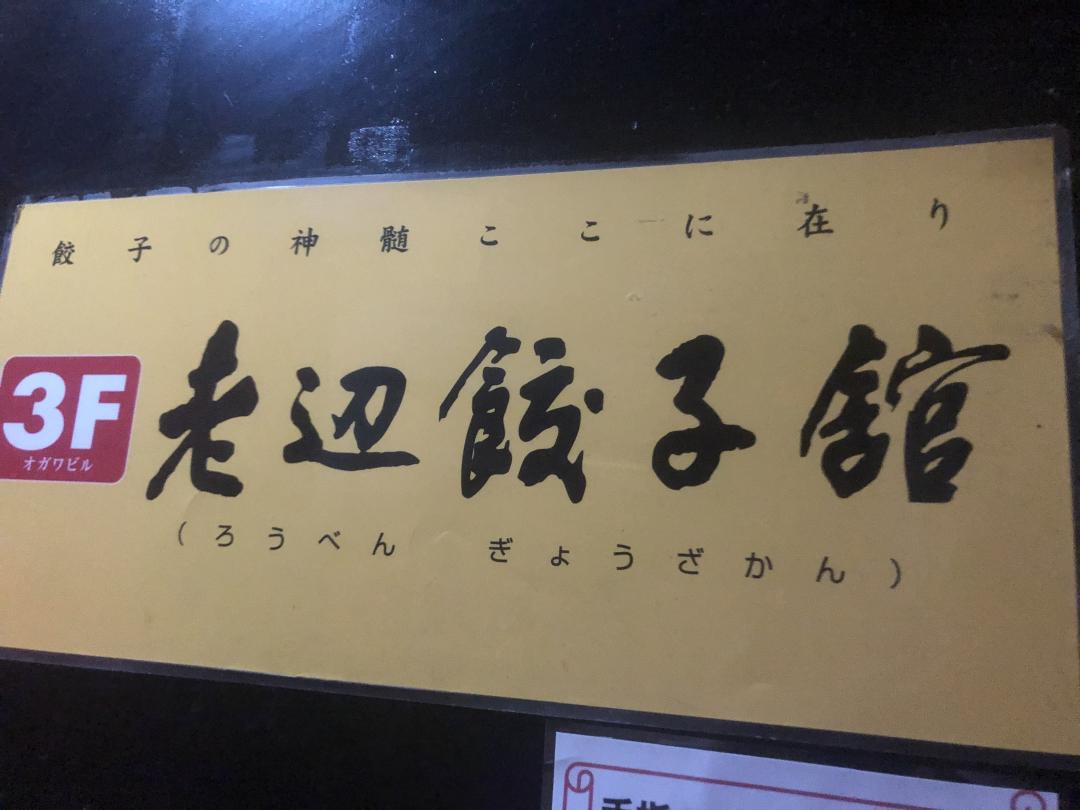 餃子の神髄ここに在り
3F
オガワビル
老辺餃子舘
(ろうべん ぎょうざかん)
手指